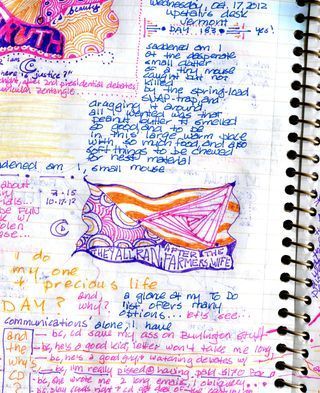 Wednesday, Oct. 17, 2012
upstairs desk
Vermont
DAY 153
yes!
beauty
TRUTH
I am
here is justice?
2nd presidential debates
zentangle
saddened am I
at the desperate
small clatter
of a tiny mouse
caught but not
killed
by the spring-load
SNAP-trap, and
dragging it around
all it wanted was that
peanut butter it smelled
so good, and to be
in this large warm place
with so much food, and also
soft things to be chewed
for nest material
saddened am I, small mouse
about
7-15
10-17-12
THEY ALL RAN AFTER THE FARMER'S WIFE
I do
my one
+ precious life
DAY?
and
why?
a glance at my TO DO
list offers many
options... let's see...
communications alone, I have
and
the
why's
CD
?
bc, cd saw my ass on Burlington stuff
bc, he's a good kid, letter won't take me long
bc, he's a good guy + watching debates w/
bc, I'm really pissed @ having paid $170 for
bc, she wrote me 2 long emails, I obliquely